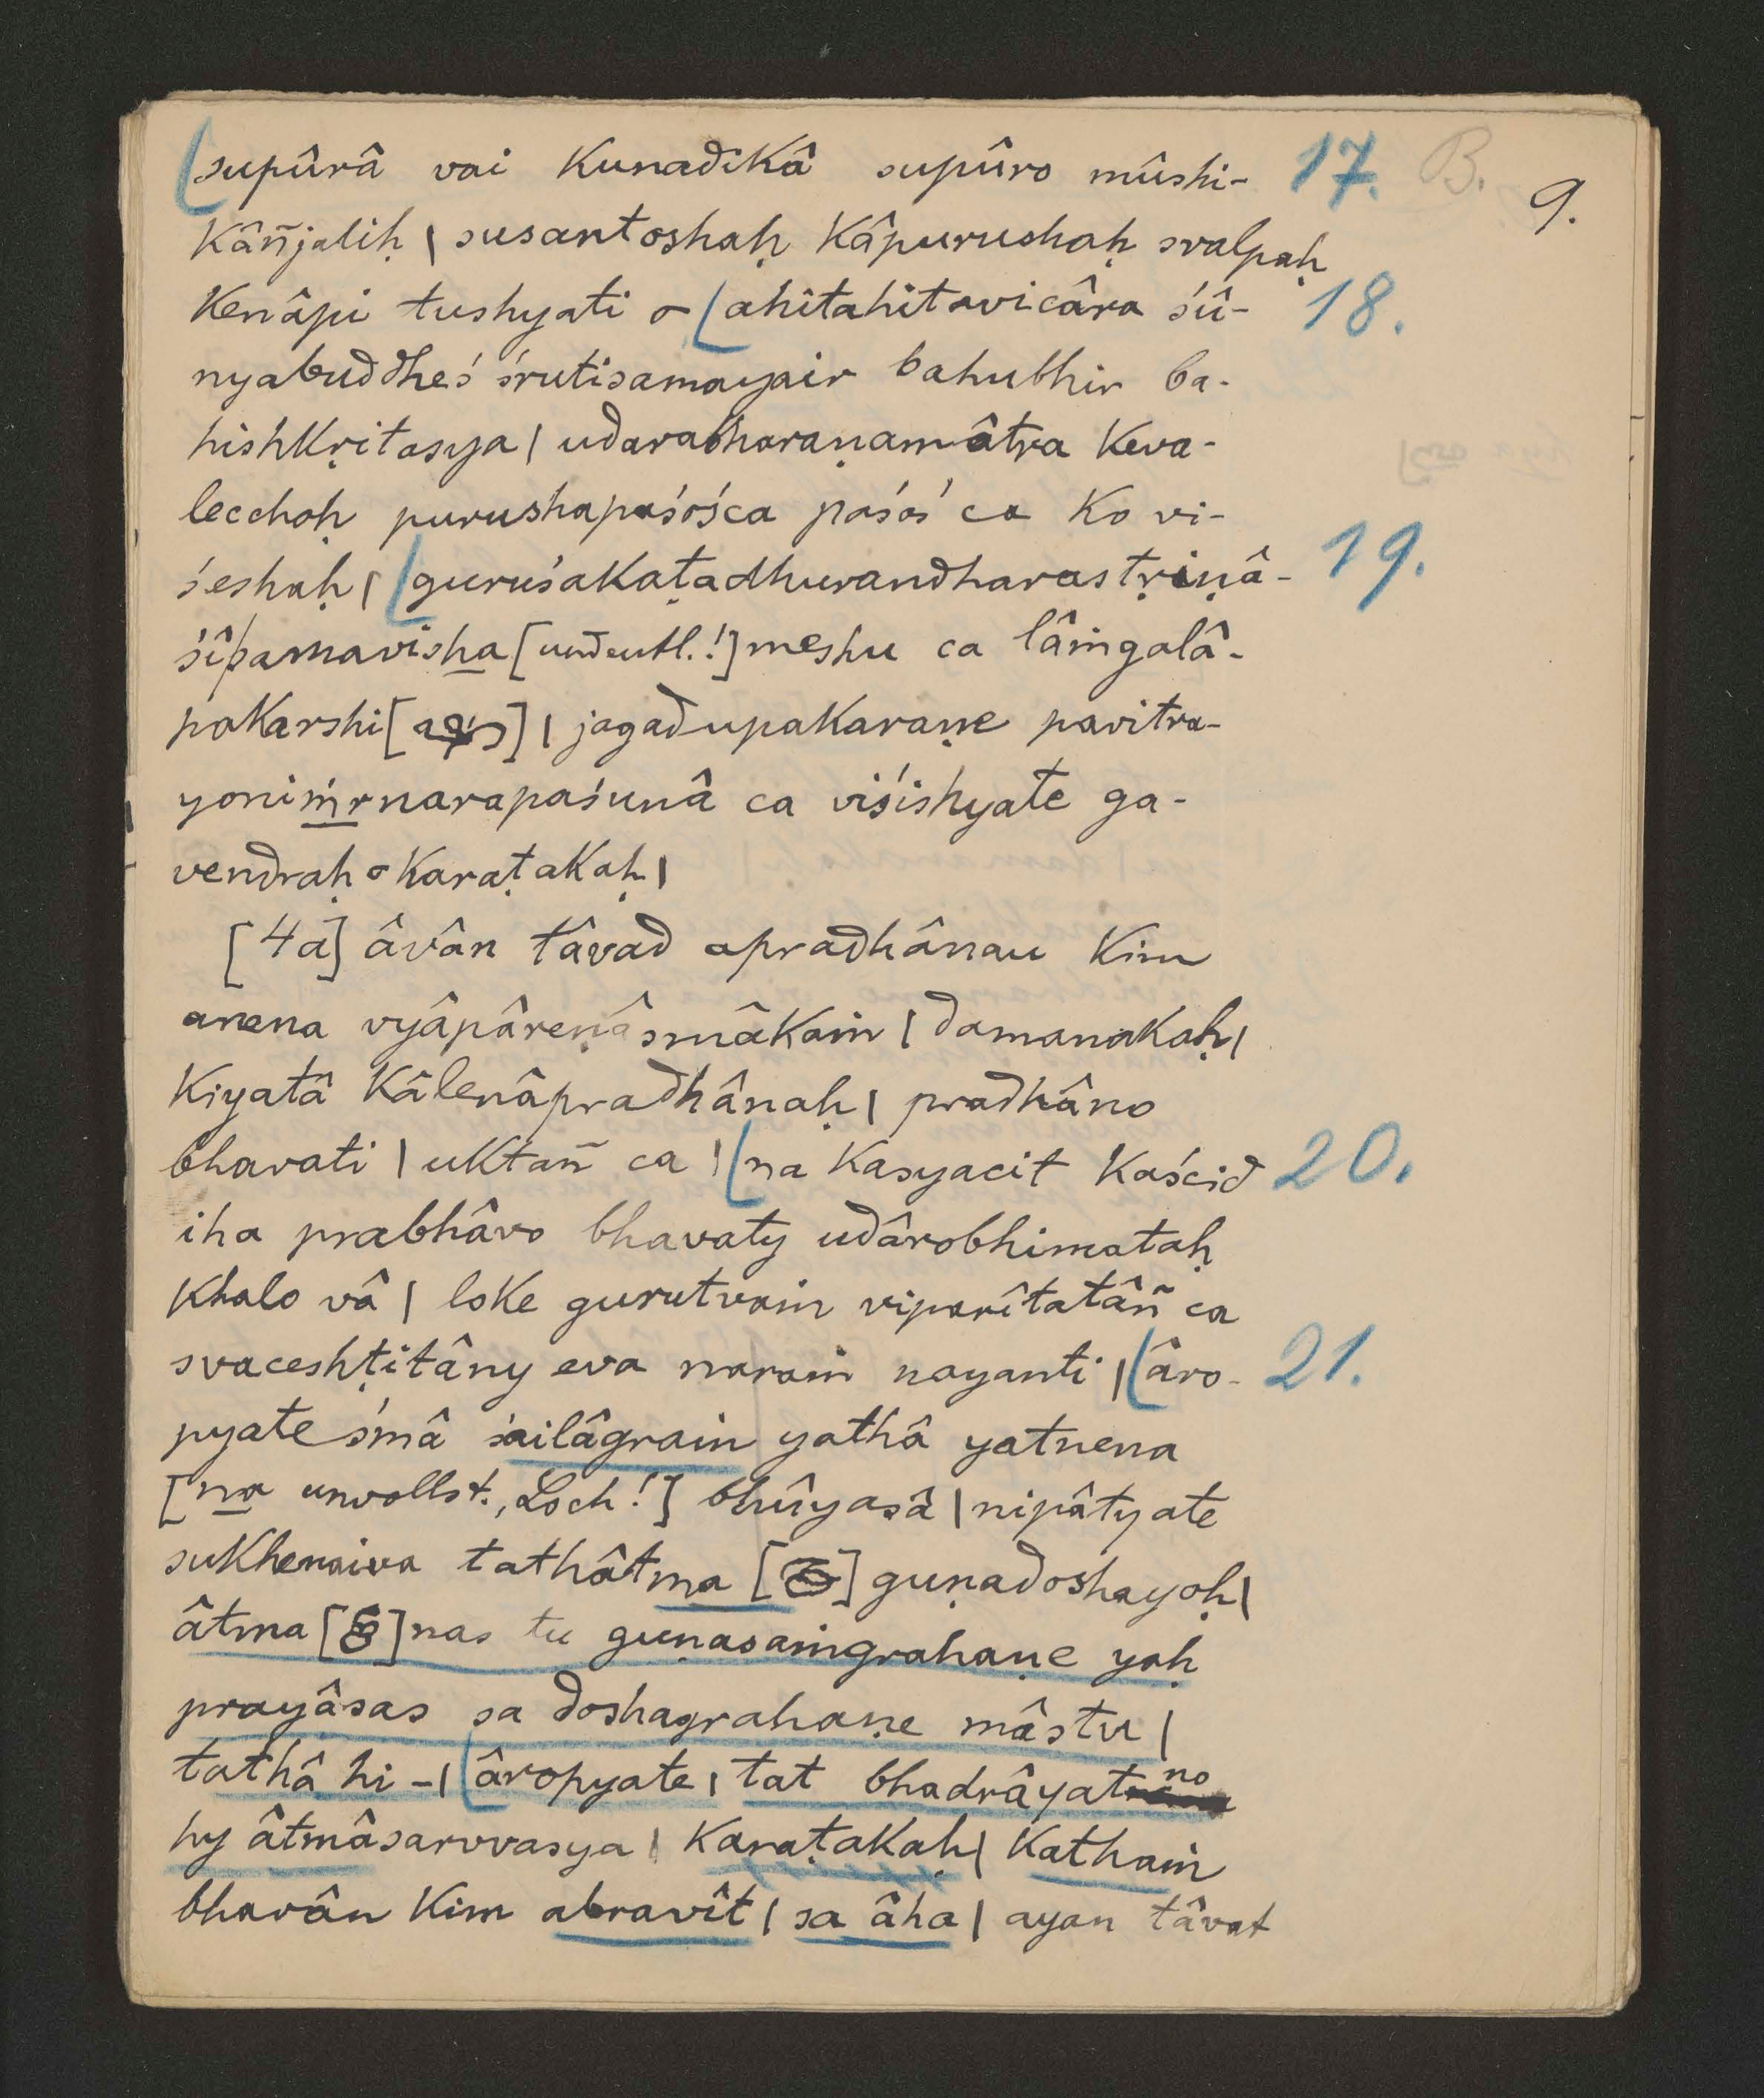 supûrâ vai kunadikâ supûro mûshi- 17. B. 9.
kâñjaliḥ | susantoshaḥ kâpurushaḥ svalpaḥ
kenâpi tushyati o ahitahitavicâra śû- 18.
nyabuddheś śrutisamayair bahubhir ba-
hishkṛitasya | udarabharaṇamâtra keva-
lecchoḥ purushapaśośca paśoś ca ko vi-
śeshaḥ | guruśakaṭadhurandharastṛiṇâ- 19.
śîpamavisha [undeutl.!] meshu ca lâṁgalâ-
pakarshi [ ] | jagadupakaraṇe pavitra-
yoniṁrnarapaśunâ ca viśishyate ga-
vendraḥ o karaṭakaḥ |
[4a] âvân tâvad apradhânau kim
anena vyâpâreṇâsmâkaṁ | damanakaḥ |
kiyatâ kâlenâpradhânaḥ | pradhâno
bhavati | uktañ ca | na kasyacit kaścid 20.
iha prabhâvo bhavaty udârobhimataḥ
khalo vâ | loke gurutvaṁ viparîtatâñ ca
svaceshṭitâny eva naraṁ nayanti | âro- 21.
pyate śmâ śailâgraṁ yathâ yatnena
[na unvollst., Loch!] bhûyasâ | nipâtyate
sukhenaiva tathâtma [ ] guṇadoshayoḥ |
âtma [ ] nas tu guṇasaṁgrahaṇe yaḥ
prayâsas sa doshagrahaṇe mâstu |
tathâ hi – | âropyate | tat bhadrâyatno
hy âtmâsarvvasya | karaṭakaḥ | kathaṁ
bhavân kim abravît | sa âha | ayan tâvat